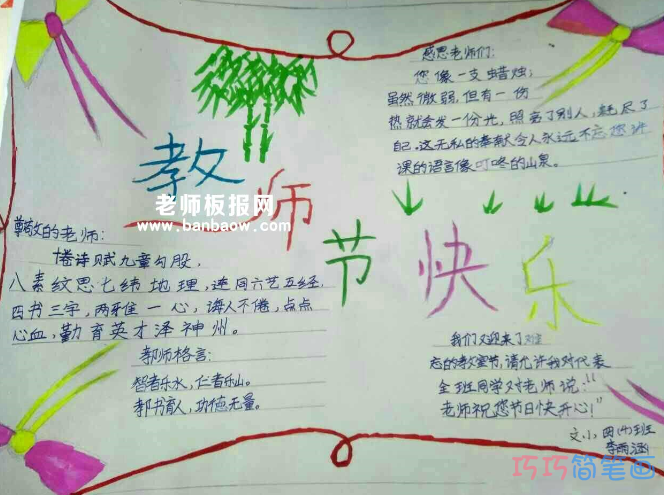 感恩老师们:
您像一支蜡烛;
虽然微弱,但有一伤
热就会发一份光,照亮了别人,耗尽了
自己,这无私的奉献令人永远不忘,您讲
课的语言像叮咚的山泉。
教师节快乐
老师板报网
www.banbaow.com
尊敬的老师:
诗赋九章勾股,
八索纹思七纬地理,连同六艺五经,
四书三字,两牙住一心,诲人不倦,点点
心血,勤育英才泽神州。
教师格言:
智者乐水,仁者乐山。
教书育人,功德无量。
我们又迎来了难
忘的教室节,请允许我对代表
全班同学对老师说:"
老师祝您节日快开心!"
文小四(4)班
李雨涵
巧巧简笔画